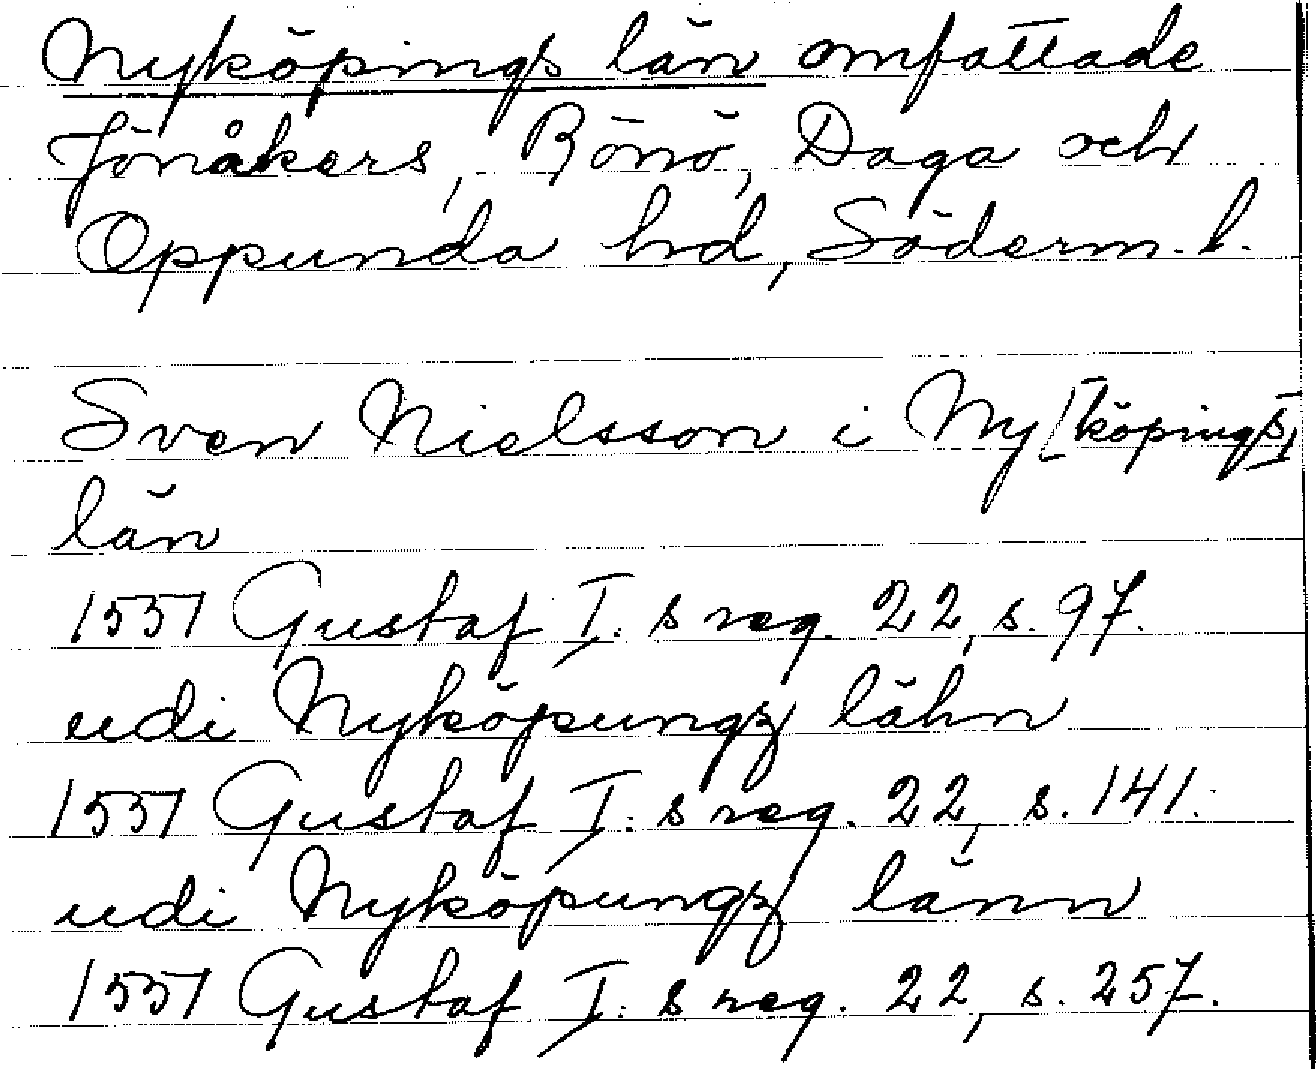 Nyköpings län omfattade
Jönåkers, Rönö, Daga och
Oppunda hd, Söderm. l.
Sven Nielsson i Ny[köpings]
län
1551 Gustaf I:s reg. 22, s. 97.
udi Nyköpungz lähn
1551 Gustaf I:s reg. 22, s. 141.
udi Nyköpungz länn
1551 Gustaf I:s reg. 22, s. 257.